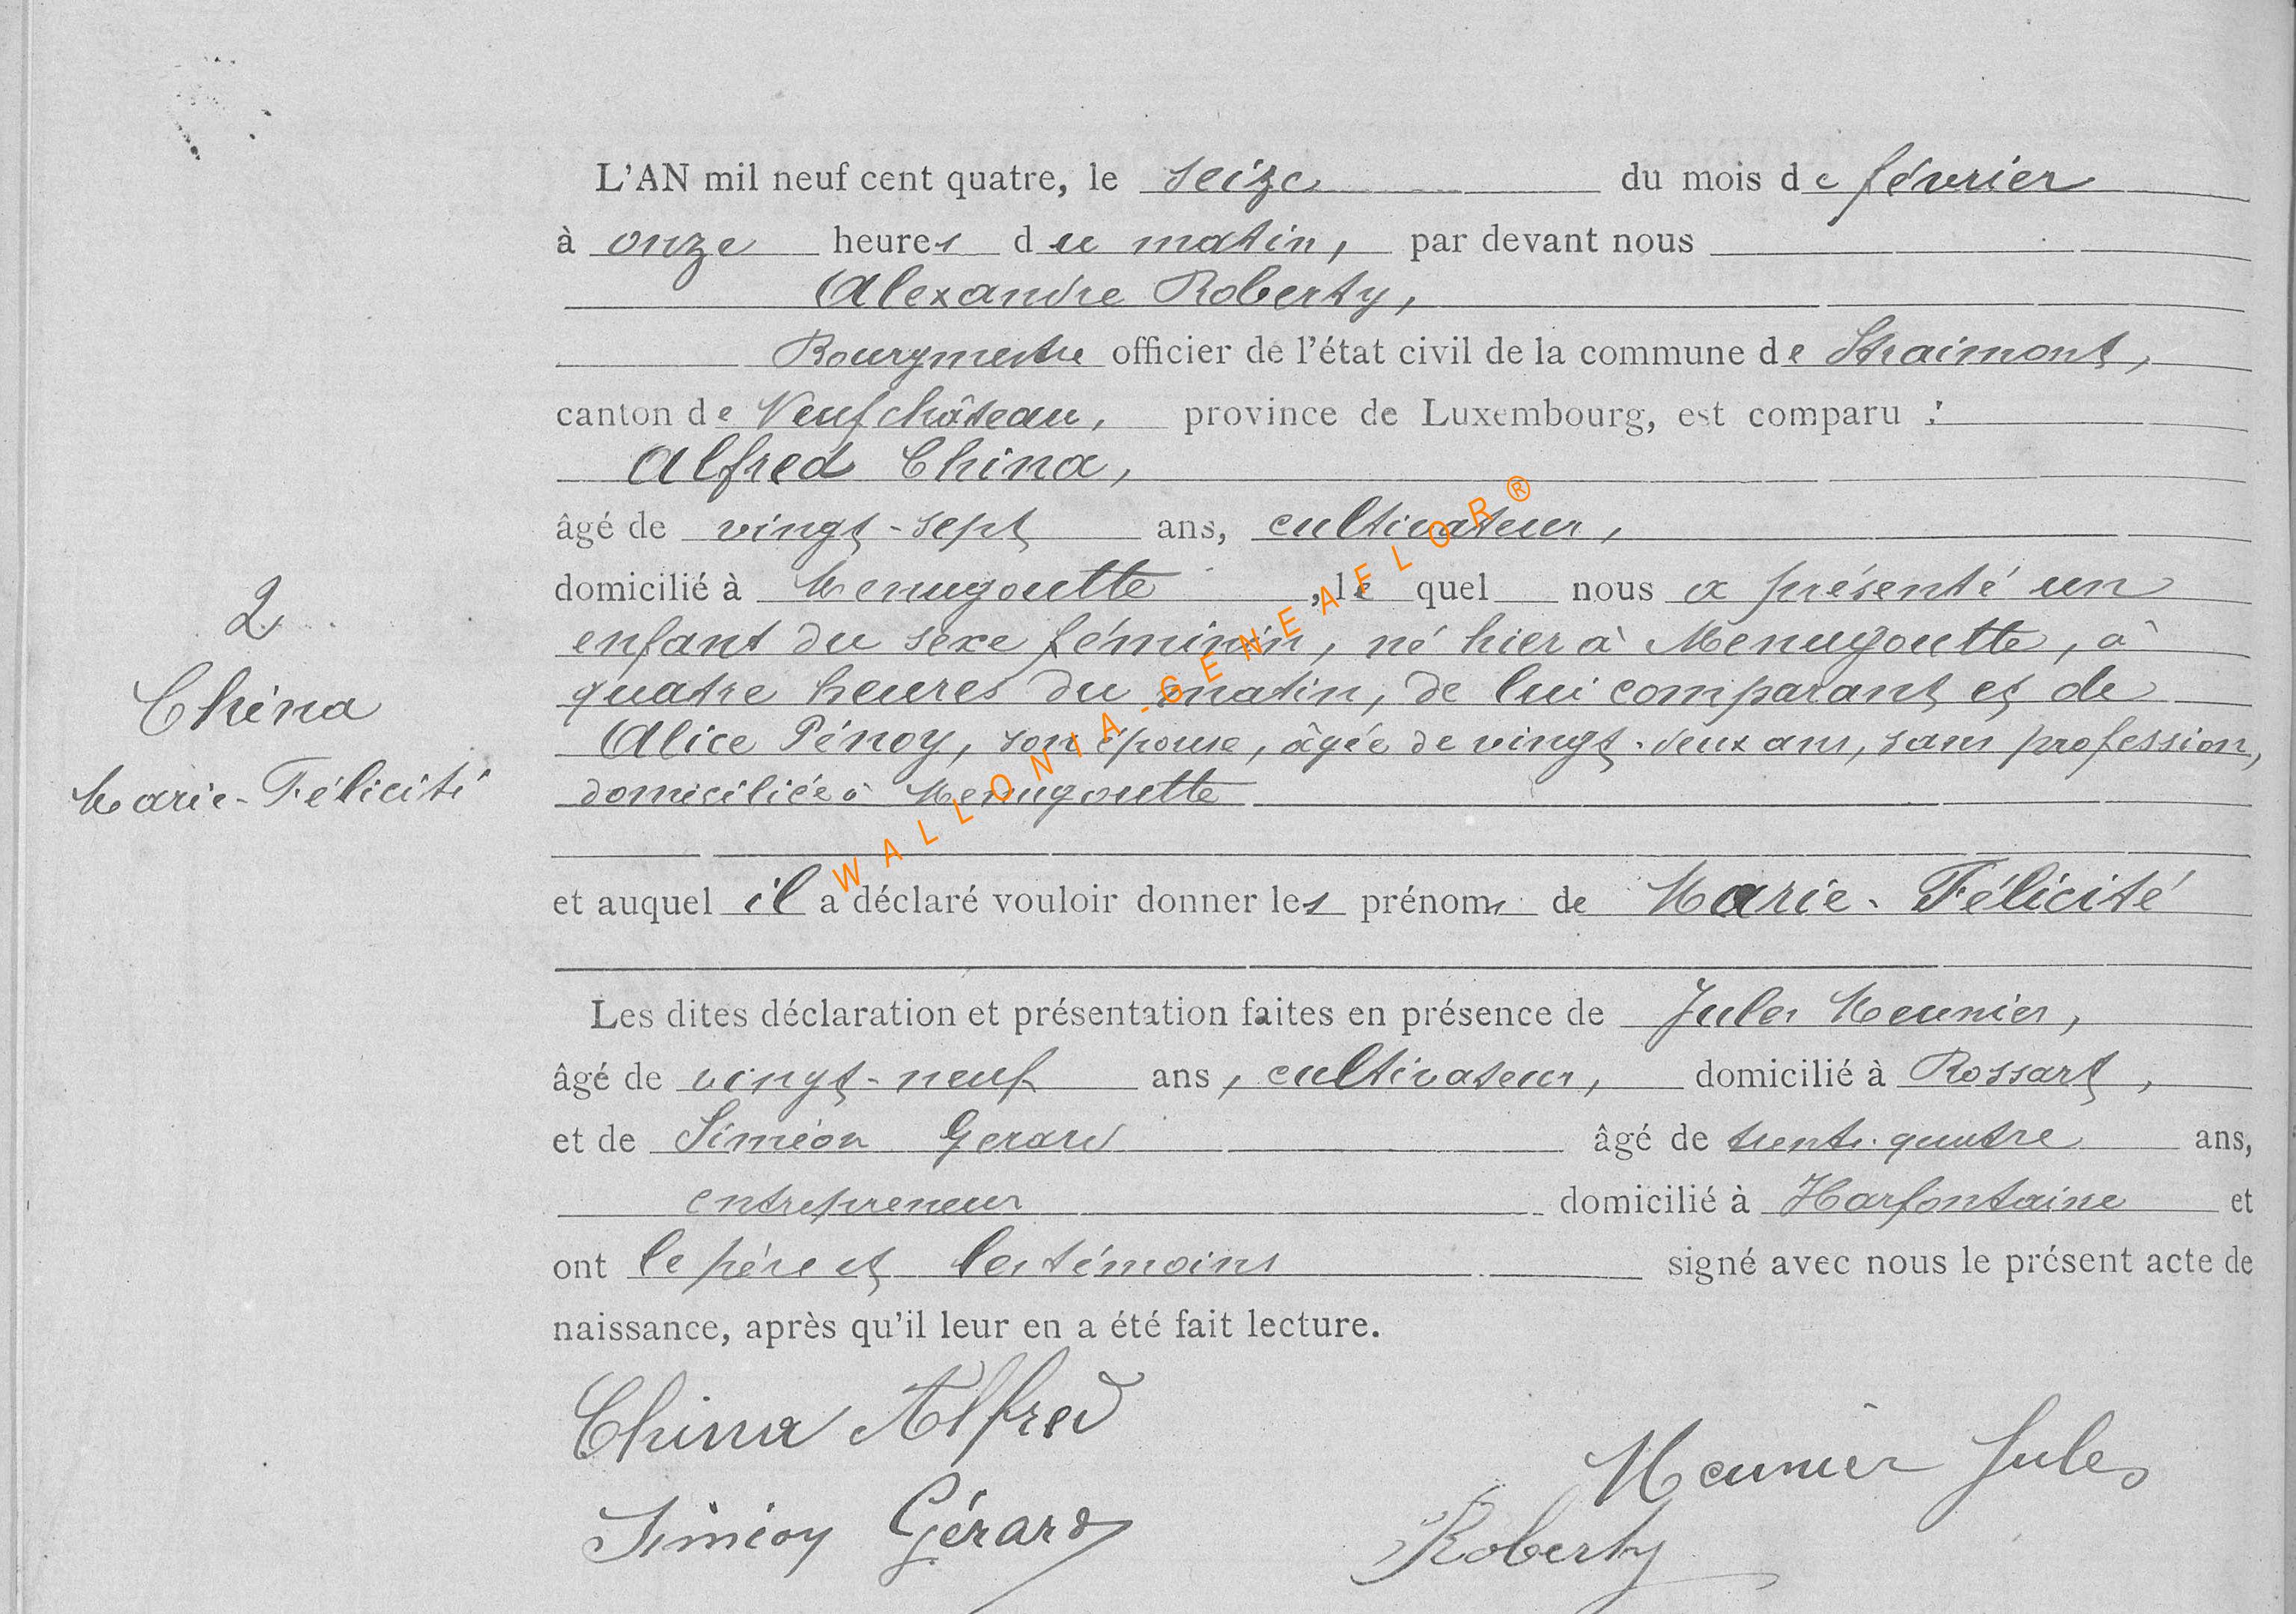 L'AN mil neuf cent quatre, le seize du mois de février
à onze heures du matin, par devant nous
Alexandre Roberty,
Bourgmestre officier de l'état civil de la commune de Straimont,
canton de Neufchâteau, province de Luxembourg, est comparu :
Alfred China,
âgé de vingt-sept ans, cultivateur,
domicilié à Menugoutte, lequel nous a présenté un
enfant du sexe féminin, né hier à Menugoutte, à
quatre heures du matin, de lui comparant et de
Alice Pénoy, son épouse, âgée de vingt-deux ans, sans profession,
domiciliée à Menugoutte
2
China
Marie-Félicité
et auquel il a déclaré vouloir donner les prénoms de Marie-Félicité
Les dites déclaration et présentation faites en présence de Jules Meunier,
âgé de vingt-neuf ans, cultivateur, domicilié à Rossart,
et de Siméon Gerard âgé de trente-quatre ans,
entrepreneur domicilié à Harfontaine et
ont le père et les témoins signé avec nous le présent acte de
naissance, après qu'il leur en a été fait lecture.
China Alfred
Meunier Jules
Siméon Gérard
Roberty
WALLONIA-GENEAFLOR®